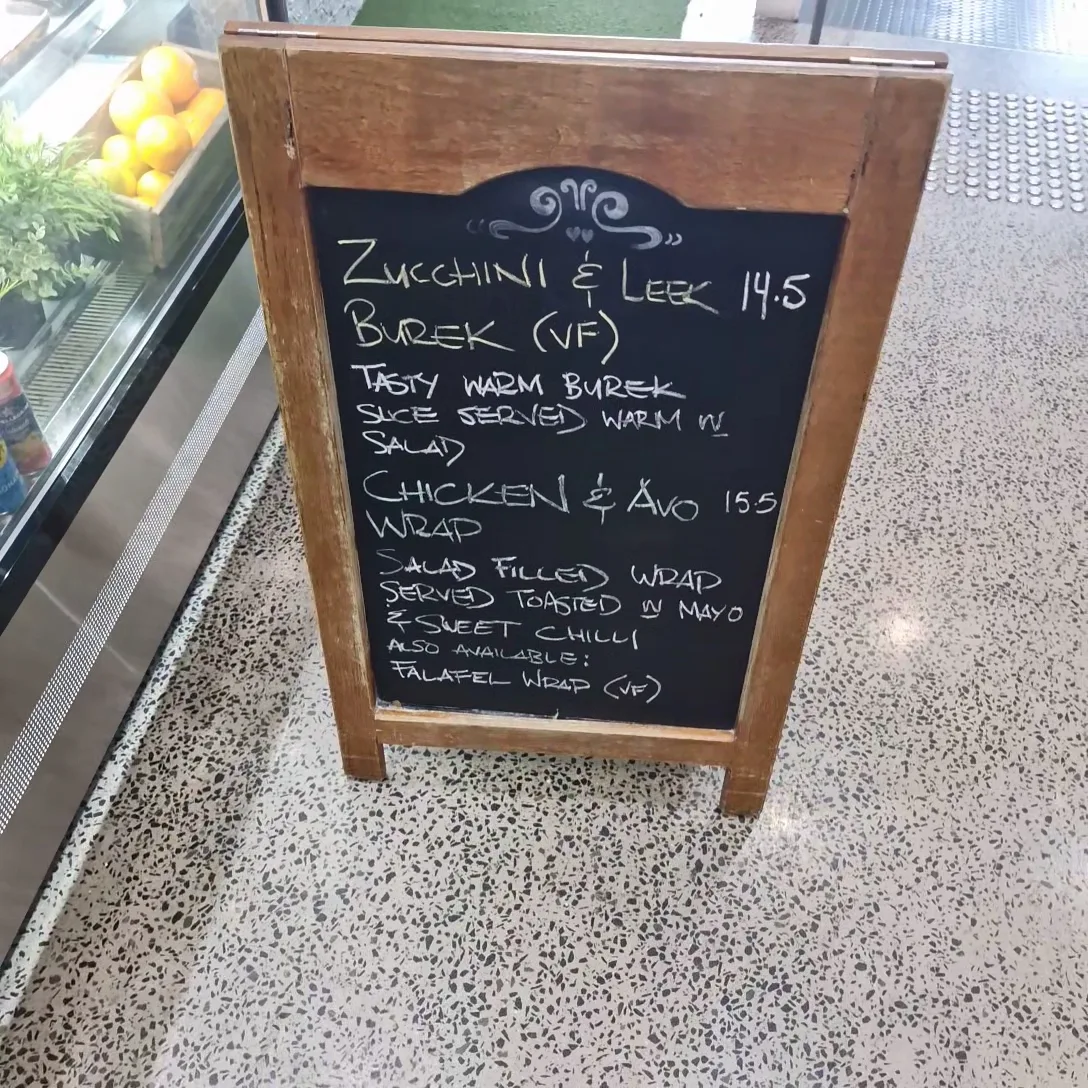 ZUCCHINI & LEEK 14.5
BUREK (VF)
TASTY WARM BUREK
SLICE SERVED WARM W
SALAD
CHICKEN & AVO 15.5
WRAP
SALAD FILLED WRAP
SERVED TOASTED W MAYO
& SWEET CHILLI
ALSO AVAILABLE:
FALAFEL WRAP (VF)